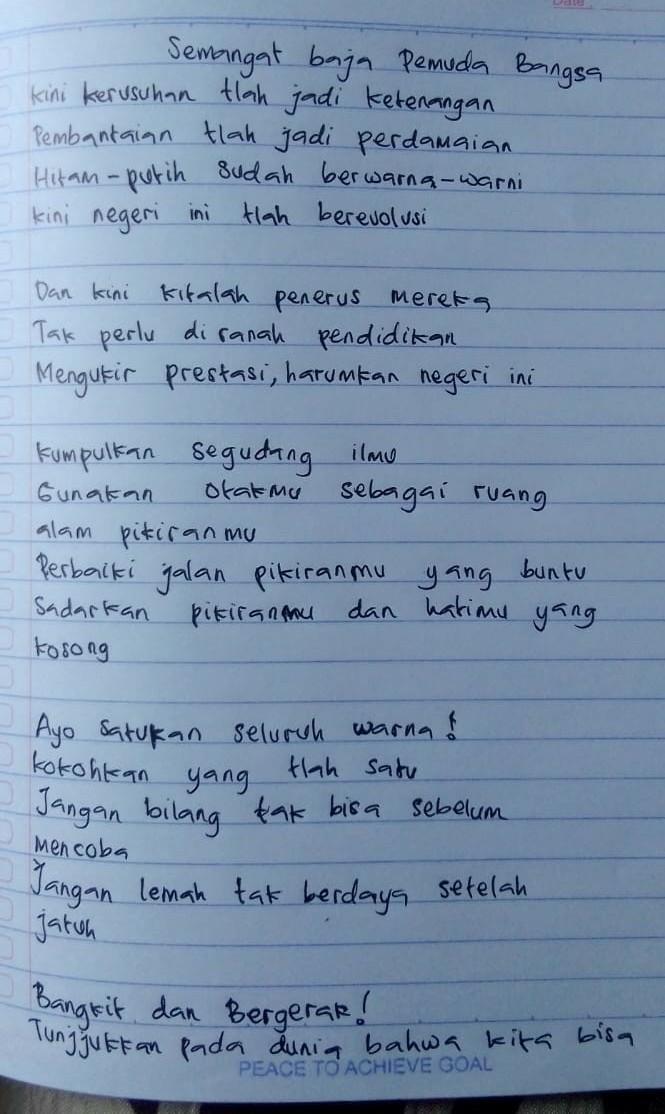 Date
Semangat baja Pemuda Bangsa
kini kerusuhan tlah jadi ketenangan
Pembantaian tlah jadi perdamaian
Hitam-putih sudah berwarna-warni
kini negeri ini tlah berevolusi
Dan kini kitalah penerus mereka
Tak perlu di ranah pendidikan
Mengukir prestasi, harumkan negeri ini
kumpulkan segudang ilmu
Gunakan otakmu sebagai ruang
alam pikiranmu
Perbaiki jalan pikiranmu yang buntu
Sadarkan pikiranmu dan hatimu yang
kosong
Ayo satukan seluruh warna!
kokohkan yang tlah satu
Jangan bilang tak bisa sebelum
mencoba
Jangan lemah tak berdaya setelah
jatuh
Bangkit dan Bergerak!
Tunjjukkan pada dunia bahwa kita bisa
PEACE TO ACHIEVE GOAL